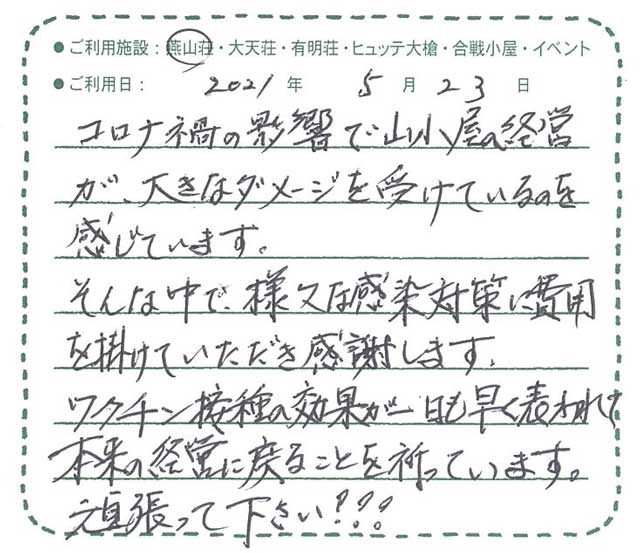 ●ご利用施設：燕山荘・大天荘・有明荘・ヒュッテ大槍・合戦小屋・イベント
●ご利用日： 2021 年 5 月 23 日
コロナ禍の影響で山小屋の経営
が、大きなダメージを受けているのを
感じています。
そんな中で、様々な感染対策に費用
を掛けていただき感謝します。
ワクチン接種の効果が一日も早く表われて
本来の経営に戻ることを祈っています。
頑張って下さい!!!